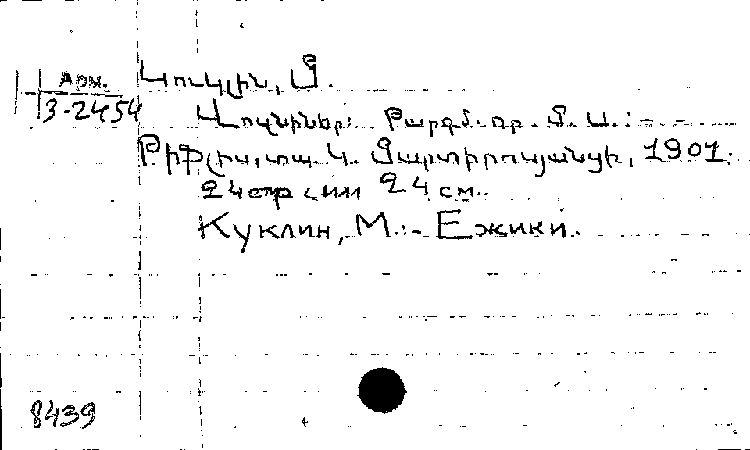 Арм.
3-2454
Կուկլին, Մ.
Ոզնիներ: Թարգմ. որ. Մ. Ա.: - -
Թիֆլիս, տպ. Կ. Մարտիրոսյանցի, 1901.
24 стр с илл 24 см.
Куклин, М.:- Ежики.
8439